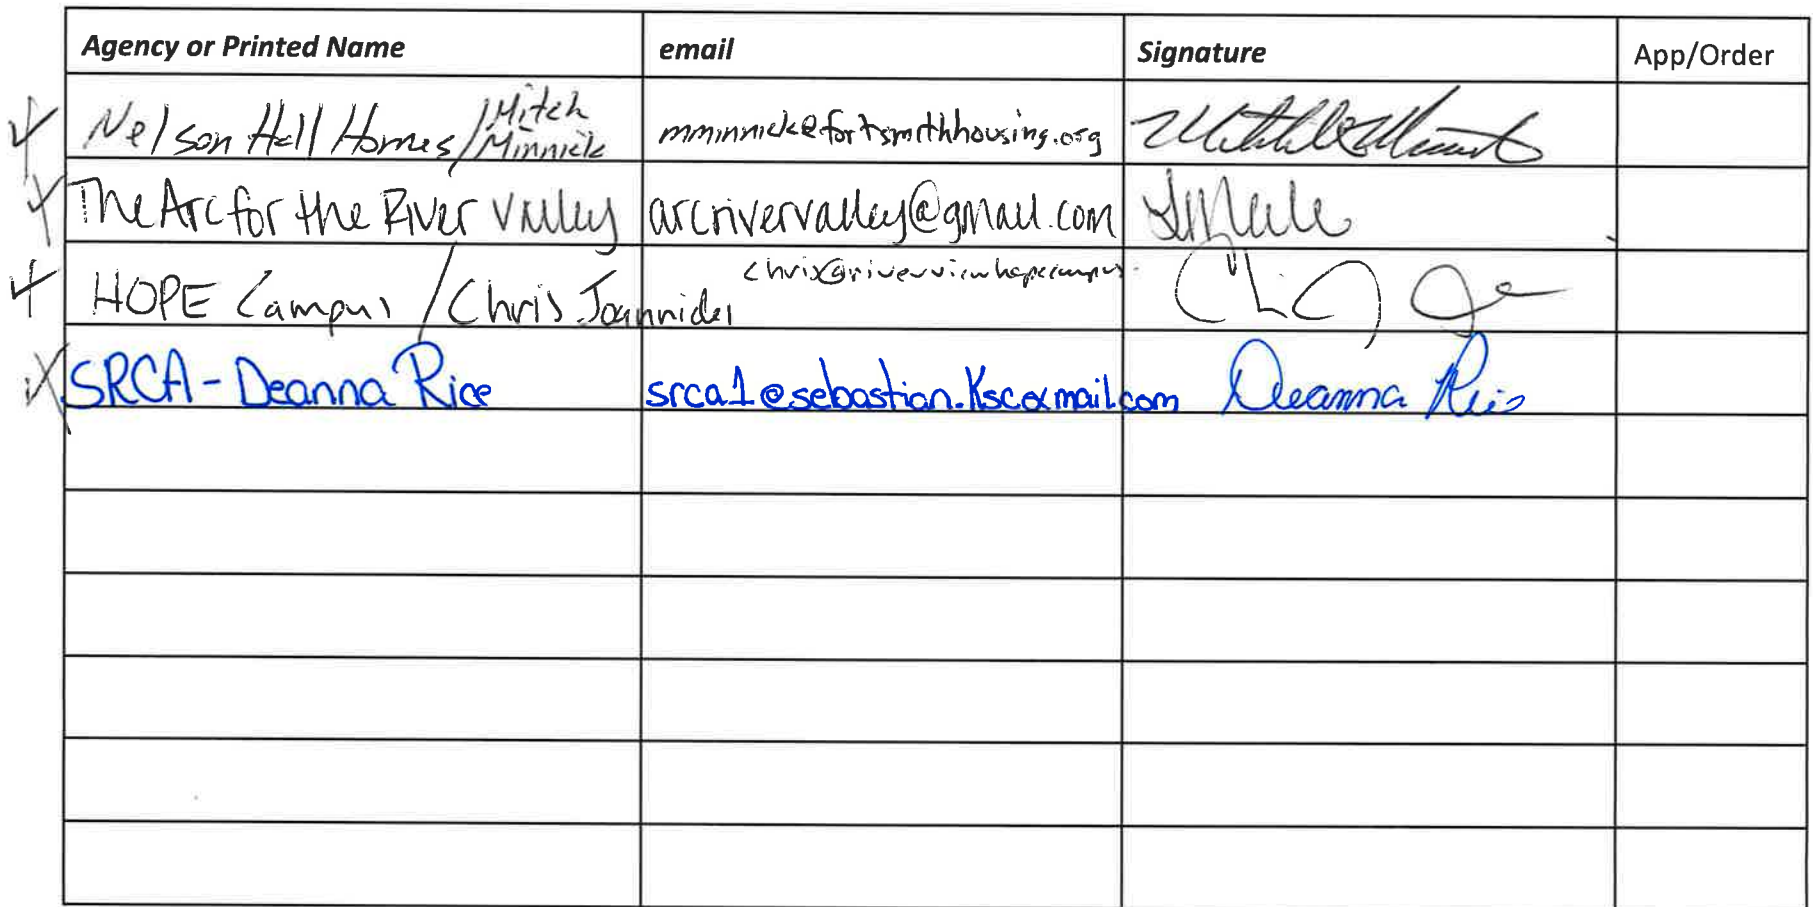 Agency or Printed Name email Signature App/Order
Nelson Hall Homes/Mitch Minnick mminnick@fortsmithhousing.org
The Arc for the River Valley arcrivervalley@gmail.com
HOPE Campus / Chris Joannides chris@riverviewhopecampus.
SRCA - Deanna Rice srca1@sebastian.kscoxmail.com Deanna Rice